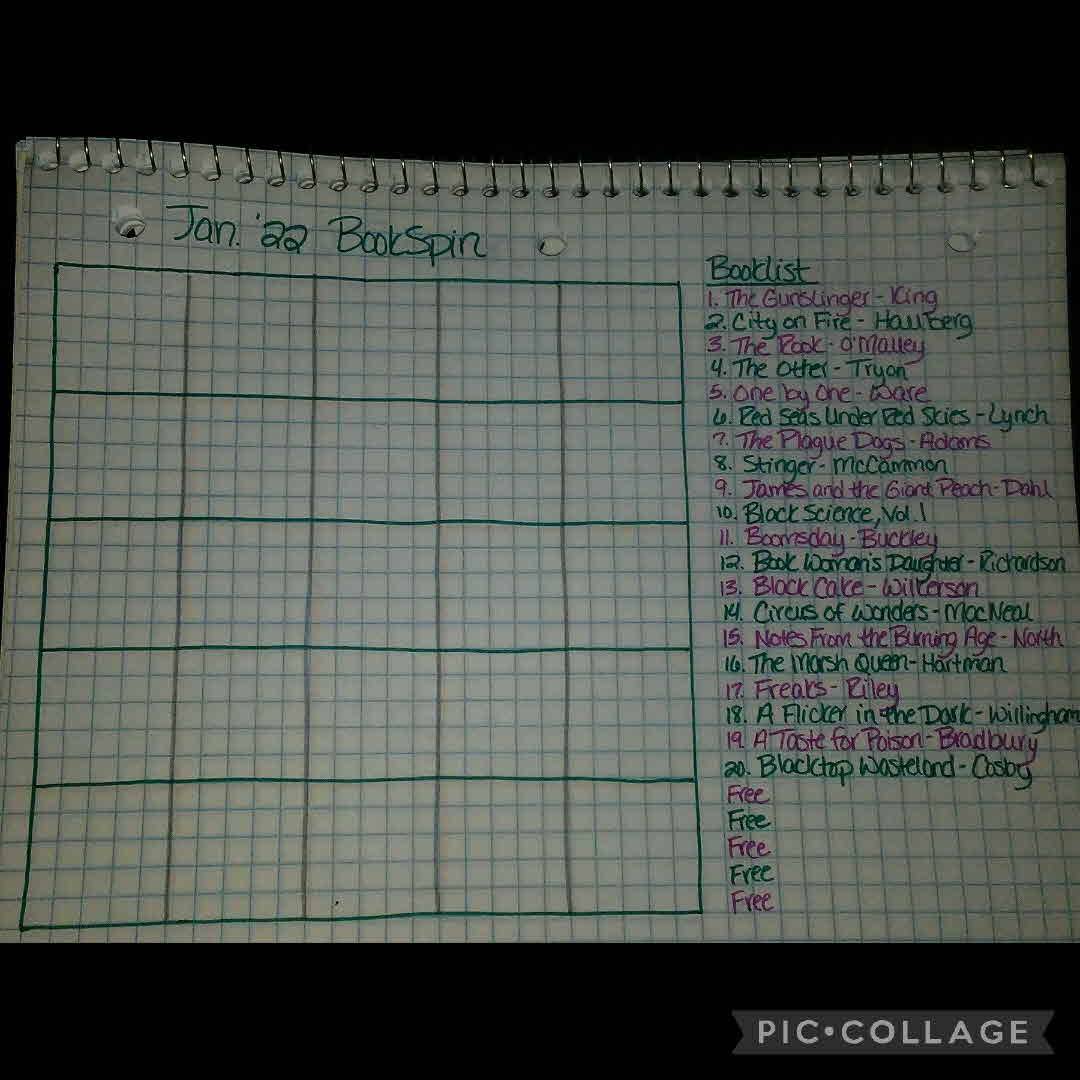 Jan. '22 BookSpin
Booklist
1. The Gunslinger - King
2. City on Fire - Hallberg
3. The Rook - O'Malley
4. The Other - Tryon
5. One by One - Ware
6. Red Seas Under Red Skies - Lynch
7. The Plague Dogs - Adams
8. Stinger - McCammon
9. James and the Giant Peach - Dahl
10. Black Science, Vol. 1
11. Boomsday - Buckley
12. Book Woman's Daughter - Richardson
13. Black Cake - Wilkerson
14. Circus of Wonders - MacNeal
15. Notes From the Burning Age - North
16. The Marsh Queen - Hartman
17. Freaks - Riley
18. A Flicker in the Dark - Willingham
19. A Taste for Poison - Bradbury
20. Blacktop Wasteland - Cosby
Free
Free
Free
Free
Free
PIC•COLLAGE